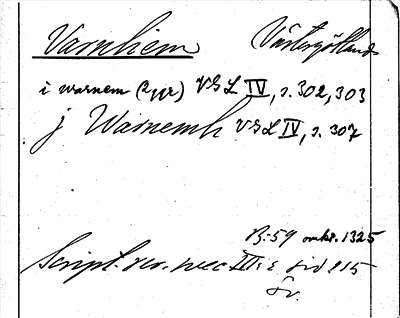 Varnhem Västergötland
i warnem (2 ggr) VGL IV, s. 302, 303
j Warnemh VGL IV, s. 307
B. 59 omkr. 1325
Script. rer. svec. III: sid 115